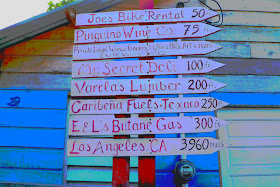 Joes Bike Rental 50
Pinguino Wine Co. 75
My Secret Deli 100 ft
Varelas Lumber 200 ft
Caribeña Fuels-Texaco 250 ft
E & L's Butane Gas 300 ft
Los Angeles CA 3960 Miles